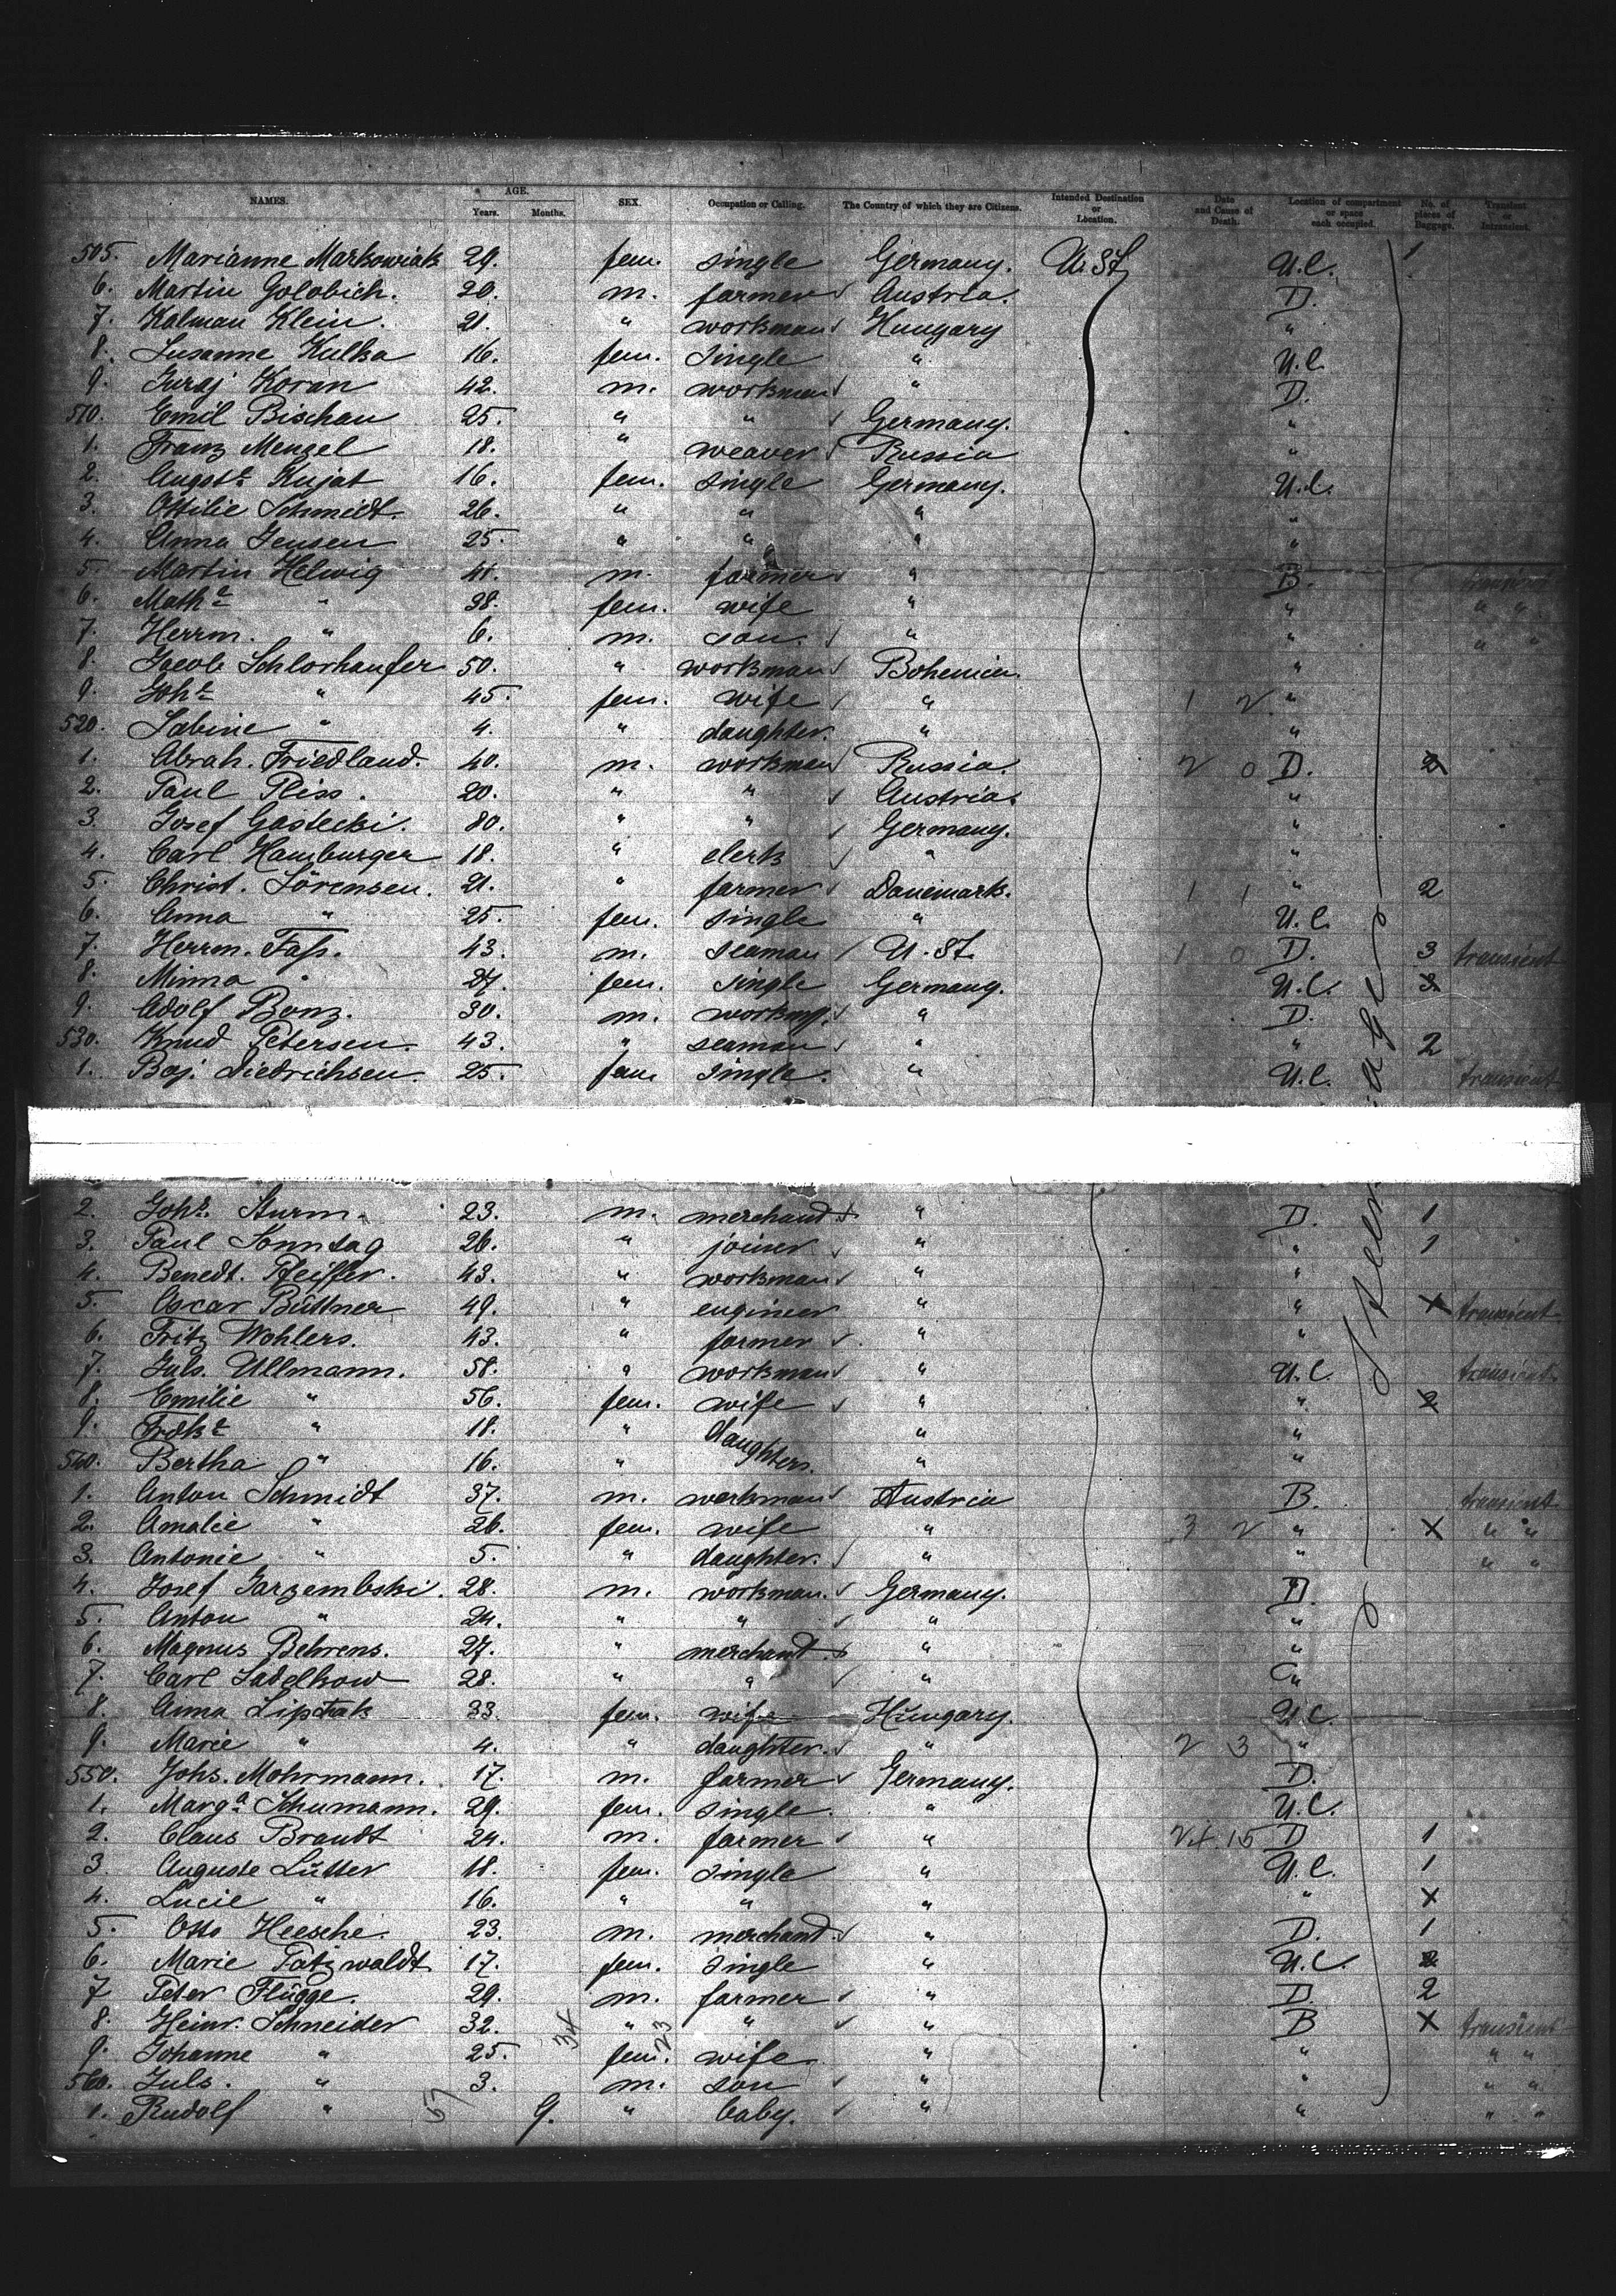 NAMES. AGE. Years. Months. SEX. Occupation or Calling. The Country of which they are Citizens. Intended Destination or Location. Date and Cause of Death. Location of compartment or space each occupied. No. of pieces of Baggage. Transient or Intransient.
505. Marianne Markowiak 29. fem. single Germany. U. St. U.C. 1
6. Martin Golobich. 20. m. farmer Austria. D.
7. Kalman Klein. 21. " workman Hungary "
8. Susanne Kulka 16. fem. single " U.C.
9. Juraj Koran 42. m. workman " D.
510. Emil Bischau 25. " " Germany. "
1. Franz Menzel 18. " weaver Russia "
2. Augste Kujat 16. fem. single Germany. U.C.
3. Ottilie Schmidt. 26. " " " "
4. Anna Jensen 25. " " " "
5. Martin Helwig 41. m. farmer " B. transient
6. Mathe " 38. fem. wife " " " "
7. Herrm. " 6. m. son. " " " "
8. Jacob Schlorhaufer 50. " workman Bohemia. "
9. Johe " 45. fem. wife " 1 2 "
520. Sabine " 4. " daughter. " "
1. Abrah. Friedland. 40. m. workman Russia. 2 0 D. 2
2. Paul Pliss. 20. " " Austria. "
3. Josef Gastecki. 80. " " Germany. "
4. Carl Hamburger 18. " clerk " "
5. Christ. Sörensen. 21. " farmer Danemark. 1 1 " 2
6. Anna " 25. fem. single " U.C.
7. Herrm. Fass. 43. m. seaman U. St. 1 0 D. 3 transient
8. Minna " 27. fem. single Germany. U.C. 3
9. Adolf Bonz. 30. m. workmn. " D.
530. Knud Petersen. 43. " seaman " " 2
1. Boj. Diedrichsen. 25. fem single. " U.C. transient
2. Johs. Sturm. 23. m. merchand " D. 1
3. Paul Sonntag 26. " joiner " " 1
4. Benedt. Pfeiffer. 43. " workman " "
5. Oscar Büttner 49. " engineer " " X transient
6. Fritz Wohlers. 43. " farmer " "
7. Juls. Ullmann. 58. " workman " U.C. transient
8. Emilie " 56. fem. wife " " 2
9. Frdke " 18. " daughters. " "
540. Bertha " 16. " " "
1. Anton Schmidt 37. m. workman Austria B. transient
2. Amalie " 26. fem. wife " 3 2 " X " "
3. Antonie " 5. " daughter. " " " "
4. Josef Jarzembski. 28. m. workman. Germany. D.
5. Anton " 24. " " " "
6. Magnus Behrens. 27. " merchant. " "
7. Carl Sadelkow 28. " " " "
8. Anna Liptak 33. fem. wife Hungary. U.C.
9. Marie " 4. " daughter. " 2 3 "
550. Johs. Mohrmann. 17. m. farmer Germany. D.
1. Marga. Schumann. 29. fem. single. " U.C.
2. Claus Brandt 24. m. farmer " 24 15 D 1
3 Auguste Lütter 18. fem. single " U.C. 1
4. Lucie " 16. " " " " X
5. Otto Heesche. 23. m. merchand. " D. 1
6. Marie Patzwaldt 17. fem. single " U.C. 2
7 Peter Flügge. 29. m. farmer " D. 2
8. Heinr. Schneider 32. " " " B X transient
9. Johanne " 25. 34 fem. 23 wife " " " "
560. Juls. " 3. m. son " " " "
1. Rudolf " 57 9. " baby. " " " "
Steerage